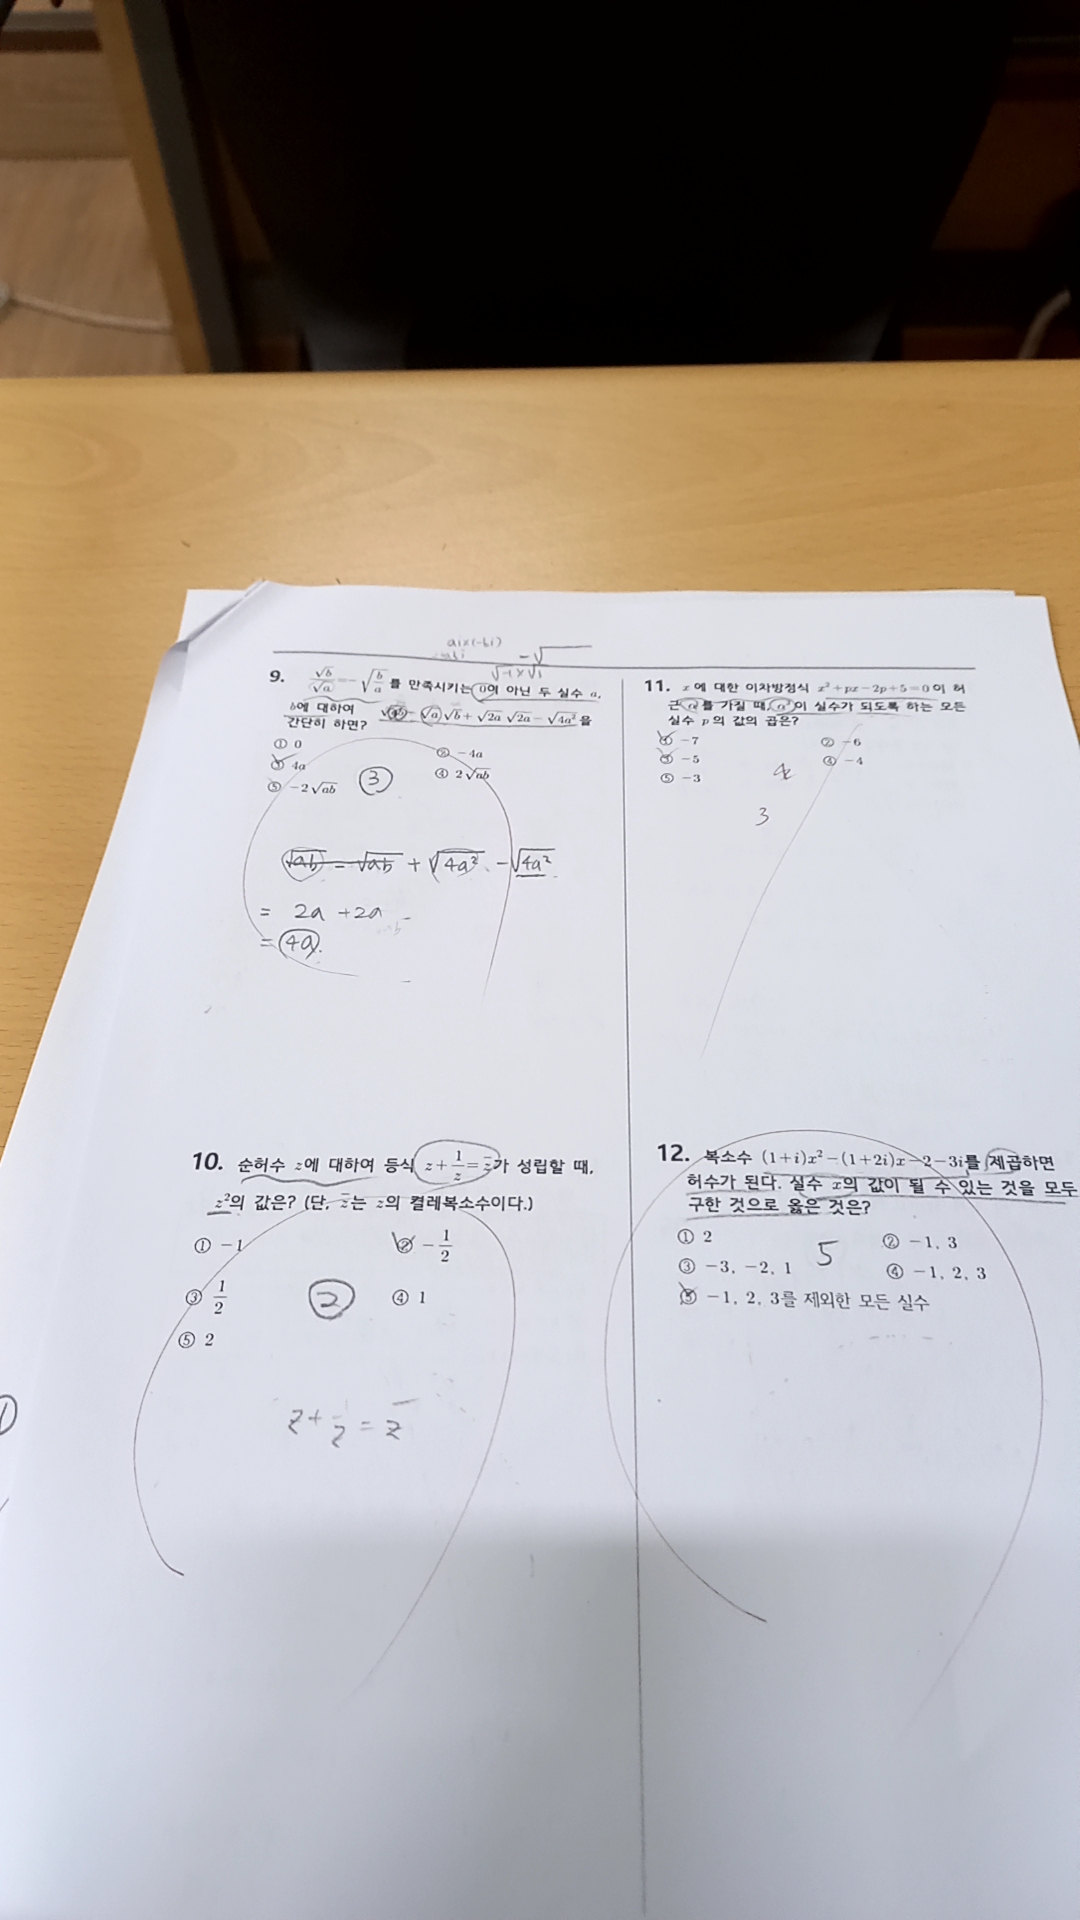 aix(-bi)
-√
√-1×√1
9. √b/√a=-√(b/a)를 만족시키는 0이 아닌 두 실수 a,
b에 대하여 √(ab)-√a√b+√(2a)√(2a)-√(4a²)을
간단히 하면?
① 0 ② -4a
③ 4a ④ 2√(ab)
⑤ -2√(ab)
③
√(ab) - √(ab) + √(4a²) - √(4a²)
= 2a + 2a
= 4a.
10. 순허수 z에 대하여 등식 z+1/z=z̄가 성립할 때,
z²의 값은? (단, z̄는 z의 켤레복소수이다.)
① -1 ② -1/2
③ 1/2 ④ 1
⑤ 2
②
z+1/z=z̄
11. x에 대한 이차방정식 x²+px-2p+5=0이 허
근 α를 가질 때, α³이 실수가 되도록 하는 모든
실수 p의 값의 곱은?
① -7 ② -6
③ -5 ④ -4
⑤ -3
3
12. 복소수 (1+i)x²-(1+2i)x-2-3i를 제곱하면
허수가 된다. 실수 x의 값이 될 수 있는 것을 모두
구한 것으로 옳은 것은?
① 2 ② -1, 3
③ -3, -2, 1 ④ -1, 2, 3
⑤ -1, 2, 3를 제외한 모든 실수
5